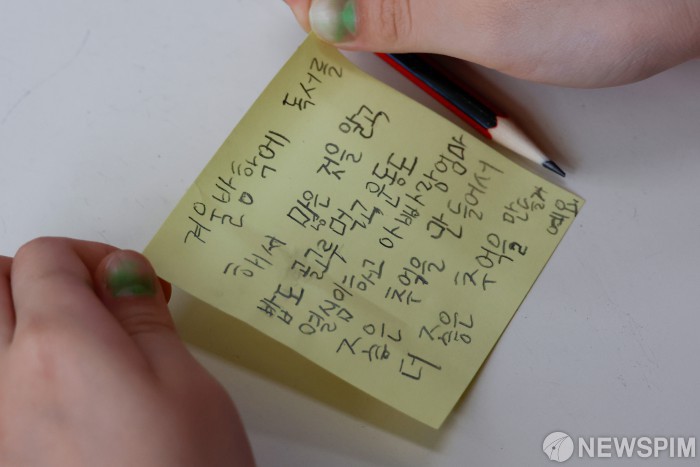 겨울방학에 독서를
해서 많은 것을 알고
밥도 골고루 먹고 운동도
열심히하고 아빠사랑엄마
좋은 추억을 만들어서
더 좋은 추억을 만들거
예요
NEWSPIM